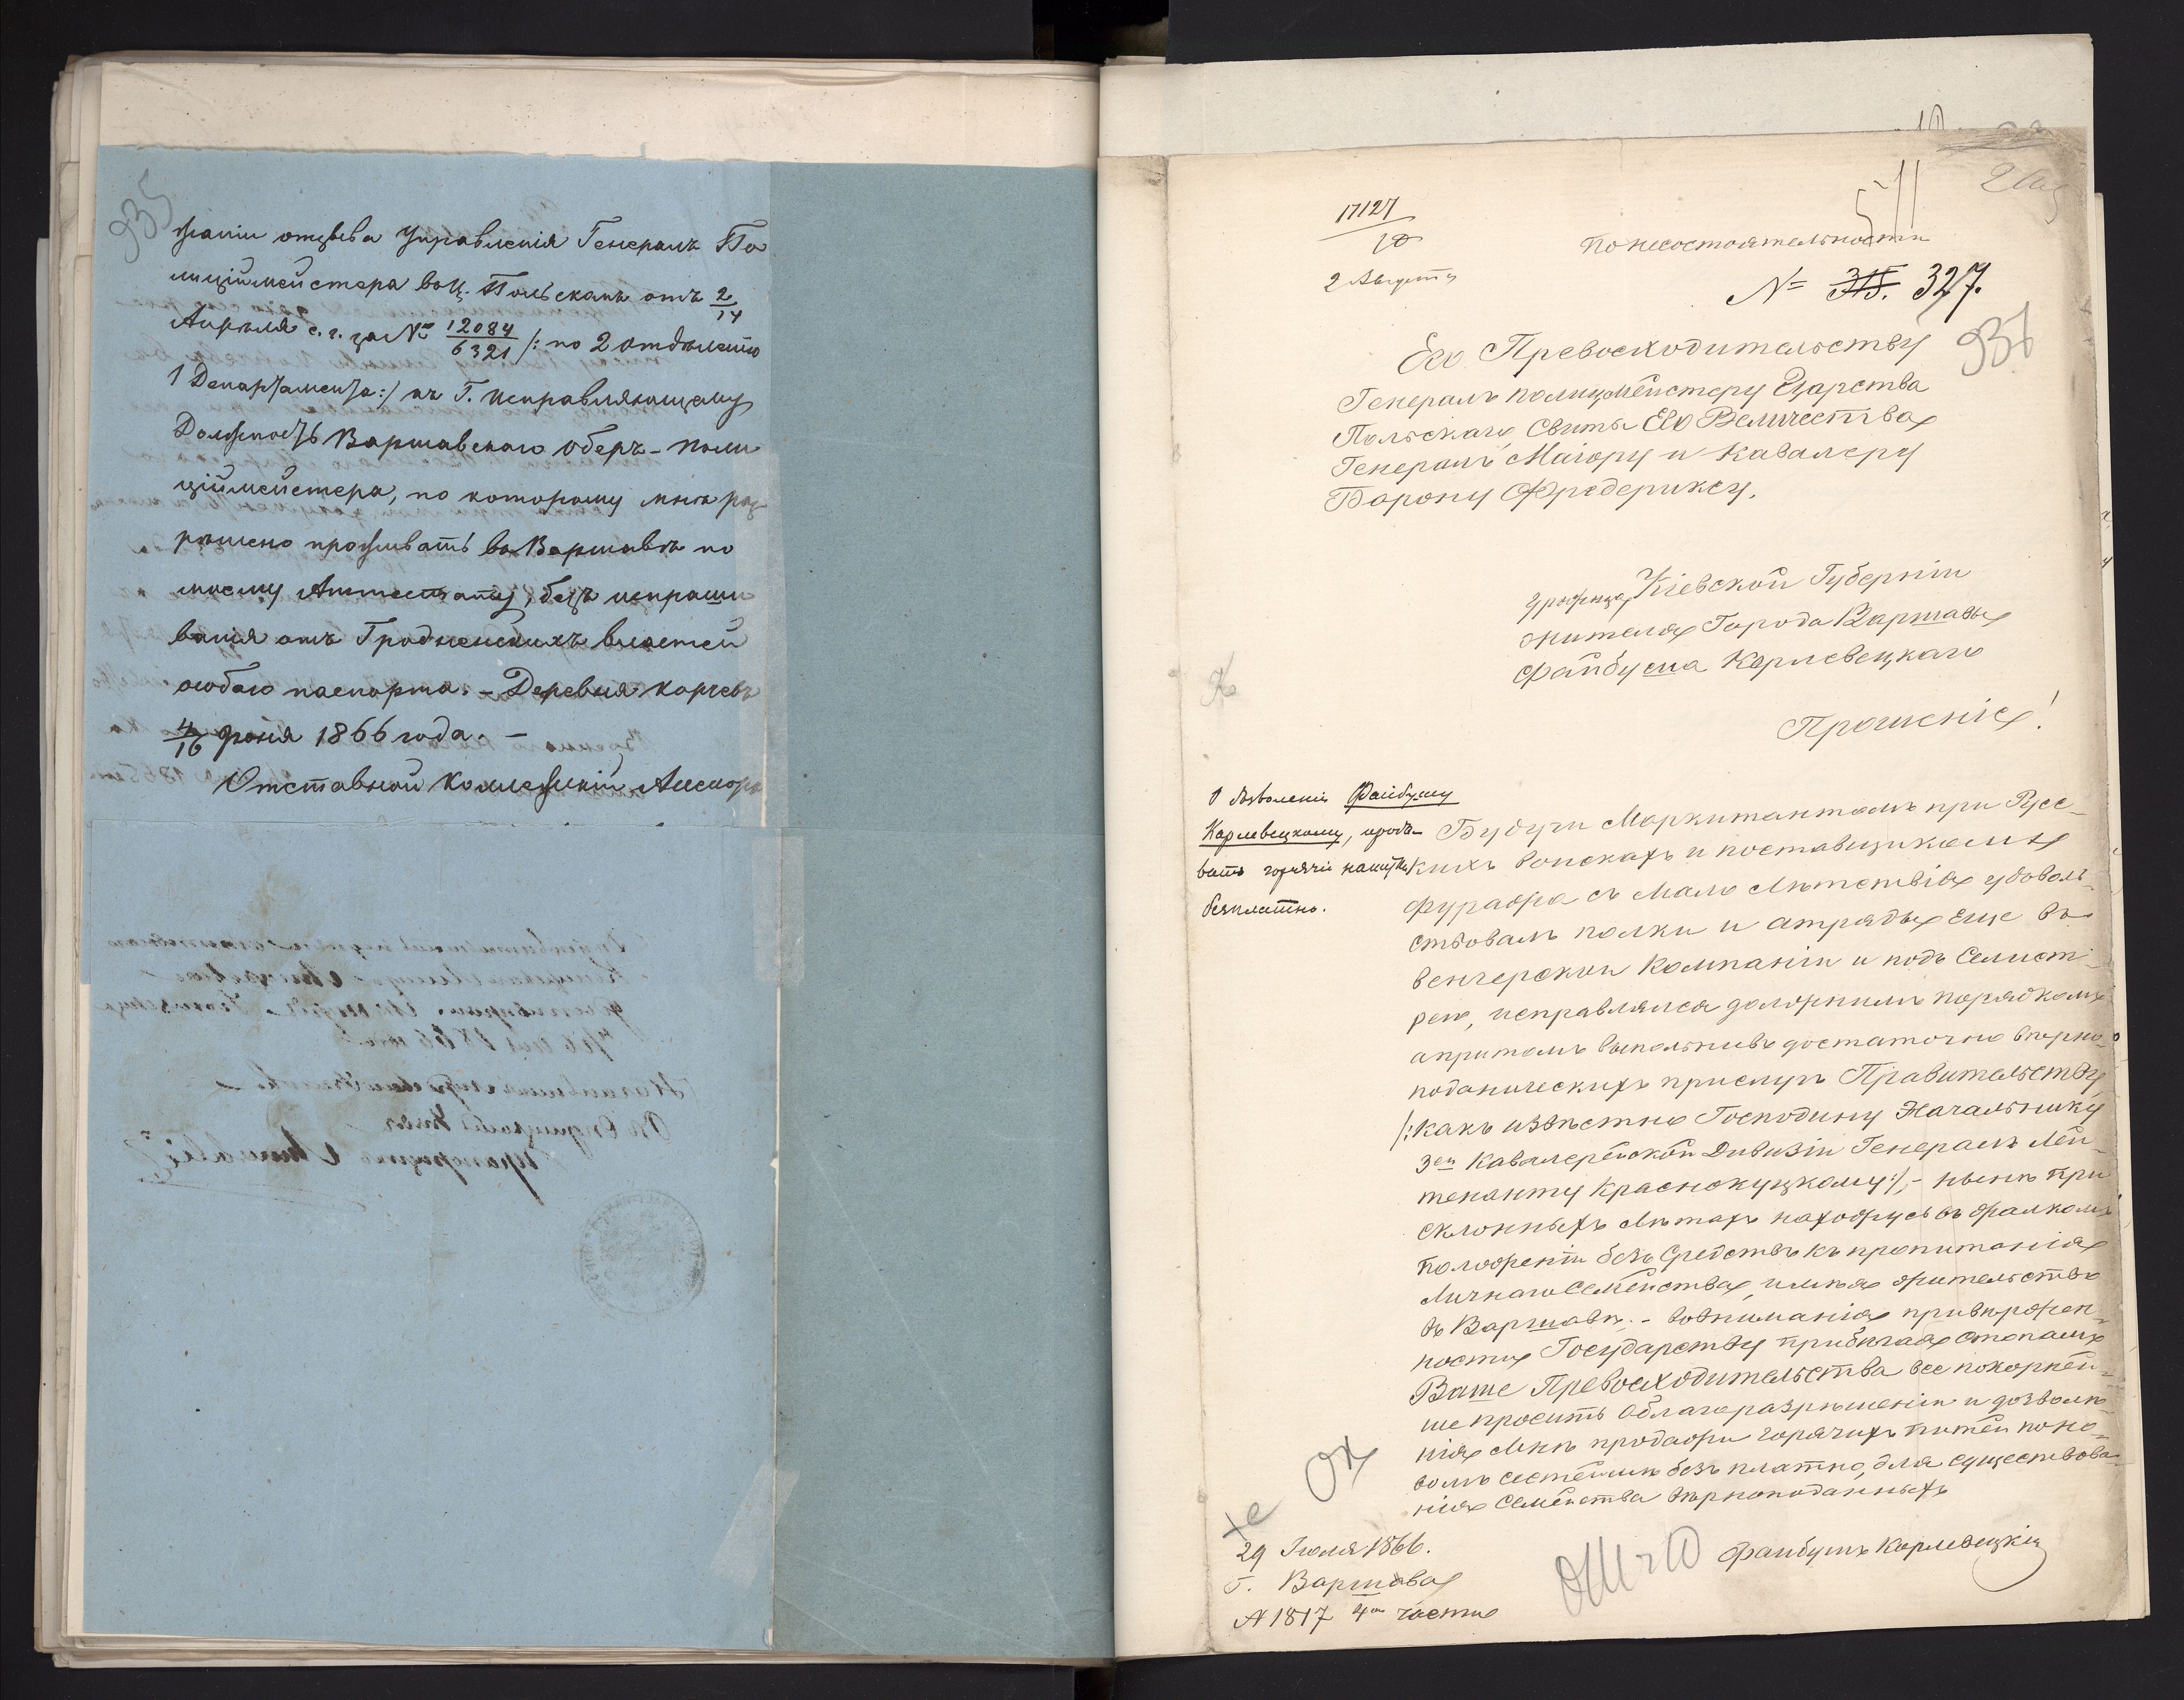 935
жаніи отзыва Управленія Генералъ По
лиціймейстера въ Ц. Польскомъ отъ 2/14
Апрѣля с. г. за № 12084/6321 /: по 2 отдѣленію
1 Департамента :/ къ Г. Исправляющему
Должность Варшавскаго Оберъ-Поли
ціймейстера, по которому мнѣ раз
рѣшено проживать въ Варшавѣ по
моему Аттестату, безъ испраши
ванія отъ Гродненскихъ властей
особаго паспорта. – Деревня Карчевъ
4/16 Іюня 1866 года. –
Отставной Коллежскій Ассесоръ
17127
2 Августа
По несостоятельности
№ 327.
936
Его Превосходительству
Генералъ полицмейстеру Царства
Польскаго, Свиты Его Величества
Генералъ Маіору и Кавалеру
Барону Фредериксу.
урожнца Кіевской Губерніи
жителя Города Варшавы
Файбуша Карлевецкаго
Прошеніе!
О дозволеніи Файбушу
Карлевецкому, прода-
вать горячіе напитки
безплатно.
Будучи Маркитантомъ при Русс-
кихъ войскахъ и поставщикомъ
фуража съ мало лѣтствія удоволь-
ствовалъ полки и атряды еще въ
венгерской Компаніи и подъ Силист-
рею, исправлялся должнимъ порядкомъ
апритомъ выполнивъ достаточно вѣрно-
поданическихъ прислугъ Правительству
/: какъ извѣстно Господину Начальнику
3ей Кавалерейской Дивизіи Генералъ Лей-
тенанту Краснокуцкому :/, – нынѣ при
склонныхъ лѣтахъ нахожусь въ жалкомъ
положеніи безъ средствъ къ пропитанія
личнаго семейства, имѣя жительство
въ Варшавѣ. – вовниманія привѣржен-
ности Государству прибѣгая стопамъ
Ваше Превосходительства все покорнѣй-
ше просить облагоразрѣшеніи и дозволѣ-
нія мнѣ продажи горячихъ питей по но-
вомъ систѣмѣ безъ платно, для существова-
нія семейства вѣрноподанныхъ
29 Іюля 1866.
Г. Варшава
№ 1817 4ой части
Файбушъ Карлевецкій